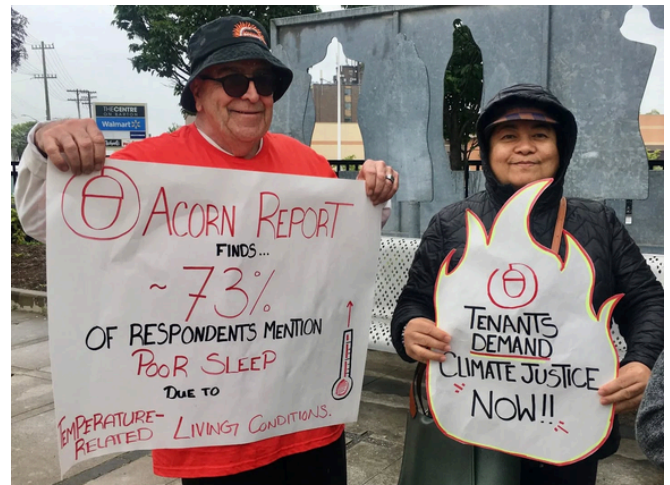 THE CENTRE
ON BARTON
Walmart
ACORN REPORT
FINDS...
~73%
OF RESPONDENTS MENTION
POOR SLEEP
DUE TO
TEMPERATURE-
RELATED LIVING CONDITIONS.
TENANTS
DEMAND
CLIMATE JUSTICE
"NOW!!"